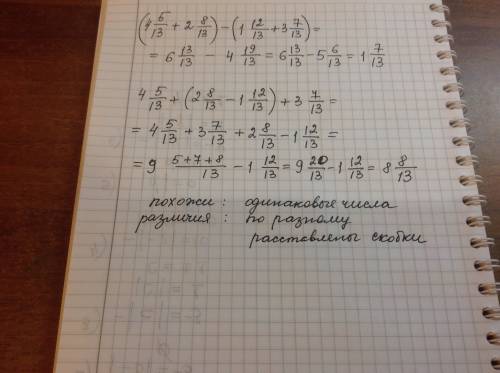 (4 5/13 + 2 8/13) - (1 12/13 + 3 7/13) =
= 6 13/13 - 4 19/13 = 6 13/13 - 5 6/13 = 1 7/13
4 5/13 + (2 8/13 - 1 12/13) + 3 7/13 =
= 4 5/13 + 3 7/13 + 2 8/13 - 1 12/13 =
= 9 5+7+8/13 - 1 12/13 = 9 20/13 - 1 12/13 = 8 8/13
похожи : одинаковые числа
различия : по разному
расставлены скобки